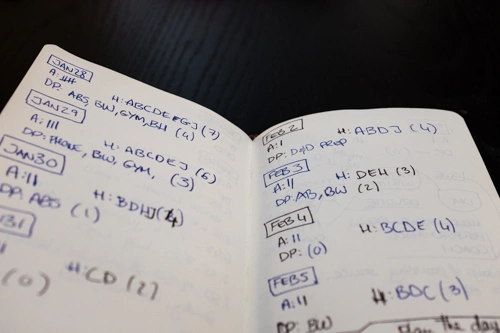 JAN28
A: HHT
DP: ABS, BW, GYM, BH (4) H: ABCDEFGJ (7)
JAN29
A: III
DP: PHONE, BW, GYM, (3) H: ABCDEJ (6)
JAN30
A: II
DP: ABS (1) H: BDHJ (4)
31
(0) H: CD (2)
FEB 2
A: I H: ABDJ (4)
DP: D&D PROP
FEB 3
A: II H: DEH (3)
DP: AB, BW (2)
FEB 4
A: II H: BCDE (4)
DP: (0)
FEB5
A: II H: BDC (3)
DP: BW
plan the day